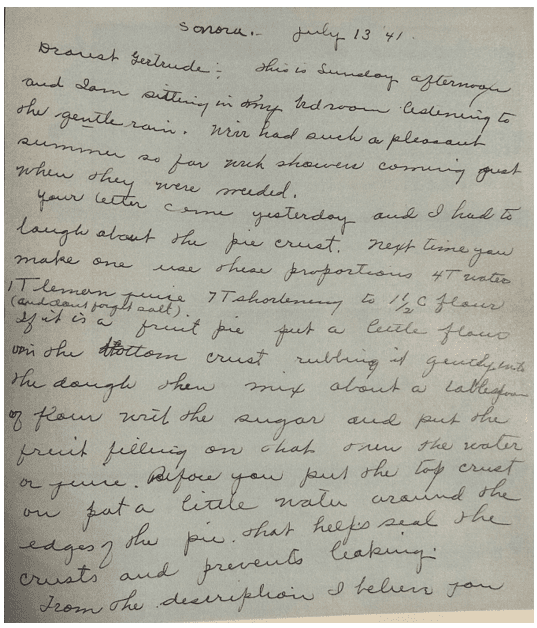 Sonora.- July 13 '41.
Dearest Gertrude:- This is Sunday afternoon
and I am sitting in my bedroom listening to
the gentle rain. We've had such a pleasant
summer so far with showers coming just
when they were needed.
Your letter came yesterday and I had to
laugh about the pie crust. Next time you
make one use these proportions 4T water
1T lemon juice 7T shortening to 1 1/2 C flour
(and dont forget salt).
If it is a fruit pie put a little flour
on the bottom crust rubbing it gently into
the dough then mix about a tablespoon
of flour with the sugar and put the
fruit filling on that then the water
or juice. Before you put the top crust
on put a little water around the
edges of the pie. that helps seal the
crusts and prevents leaking.
From the description I believe you